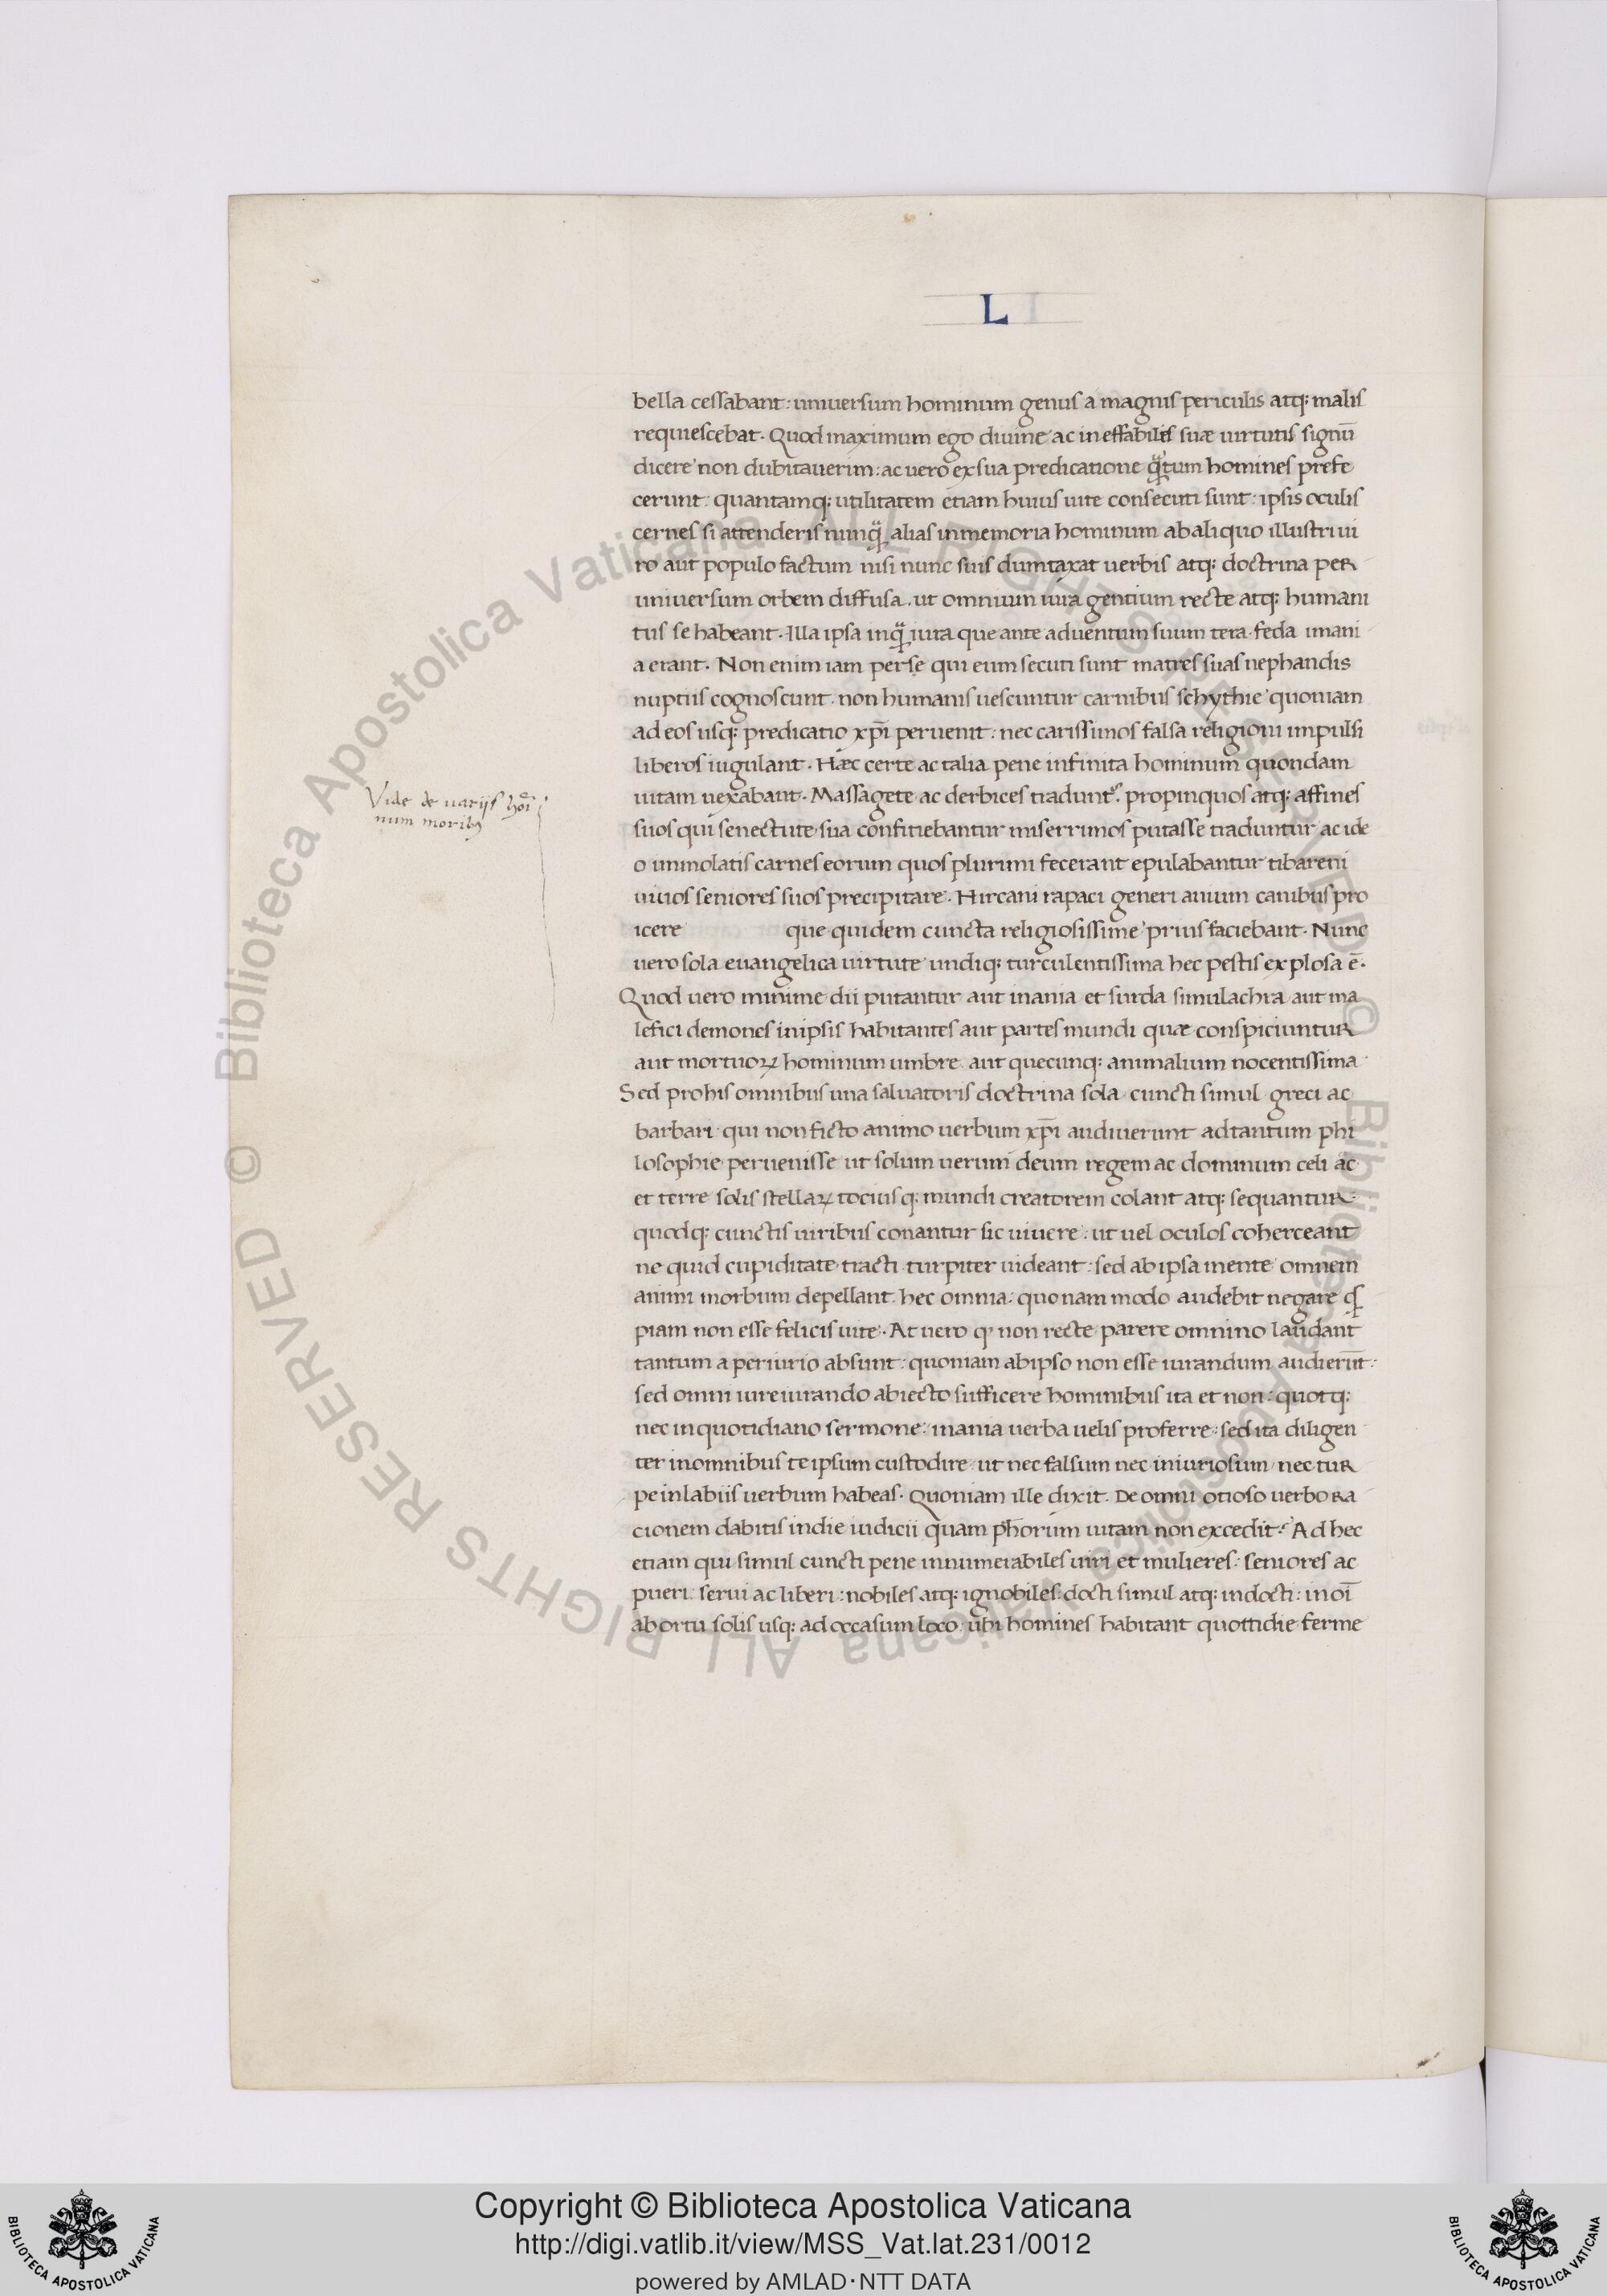 L I
bella cessabant: uniuersum hominum genus a magnis periculis atq: malis
requiescebat. Quod maximum ego diuine ac ineffabilis suæ uirtutis signū
dicere non dubitauerim: ac uero ex sua predicatione q̈tum homines profe
cerunt: quantamq: utilitatem etiam huius uite consecuti sunt: ipsis oculis
cernes si attenderis nunq̈ alias in memoria hominum ab aliquo illustri ui
ro aut populo factum nisi nunc suis dumtaxat uerbis atq: doctrina per
uniuersum orbem diffusa. ut omnium iura gentium recte atq: humani
tus se habeant. Illa ipsa inq̈ iura que ante aduentum suum tera feda imani
a erant. Non enim iam perse qui eum secuti sunt matres suas nephandis
nuptiis cognoscunt. non humanis uescuntur carnibus schythie quoniam
ad eos usq: predicatio xp̄i peruenit: nec carissimos falsa religioni impulsi
liberos iugulant. Hæc certe ac talia pene infinita hominum quondam
uitam uexabant. Massagete ac derbices tradunt᷑. propinquos atq: affines
suos qui senectute sua confitiebantur miserrimos putasse traduntur ac ide
o inmolatis carnes eorum quos plurimi fecerant epulabantur tibareni
uiuos seniores suos precipitare. Hircani rapaci generi auium canibus pro
icere que quidem cuncta religiosissime prius faciebant. Nunc
uero sola euangelica uirtute undiq: turculentissima hec pestis explosa ē.
Quod uero minime dii putantur aut inania et surda simulachra aut ma
lefici demones in ipsis habitantes aut partes mundi quæ conspiciuntur
aut mortuoꝝ hominum umbre aut quecunq: animalium nocentissima
Sed pro his omnibus una saluatoris doctrina sola cuncti simul greci ac
barbari qui non ficto animo uerbum xp̄i audiuerunt ad tantum phi
losophie peruenisse ut solum uerum deum regem ac dominum celi ac
et terre solis stellaꝝ tociusq: mundi creatorem colant atq: sequantur.
quodq: cunctis uiribus conantur sic uiuere: ut uel oculos coherceant
ne quid cupiditate tracti turpiter uideant: sed ab ipsa mente omnem
animi morbum depellant. hec omnia: quonam modo audebit negare q̄
piam non esse felicis uite. At uero q non recte parere omnino laudant
tantum a periurio absunt: quoniam ab ipso non esse iurandum audierūt:
sed omni iureiurando abiecto sufficere hominibus ita et non: quotq:
nec in quotidiano sermone: inania uerba uelis proferre: sed ita diligen
ter in omnibus te ipsum custodire ut nec falsum nec iniuriosum nec tur
pe in labiis uerbum habeas. Quoniam ille dixit. De omni otioso uerbo ra
cionem dabitis in die iudicii quam ph̄orum uitam non excedit. Ad hec
etiam qui simul cuncti pene innumerabiles uiri et mulieres: seniores ac
pueri: serui ac liberi: nobiles atq: ignobiles: docti simul atq: indocti: in oī
ab ortu solis usq: ad occasum loco ubi homines habitant quottidie ferme
Vide de uarijs hoī
num moribꝫ
© Biblioteca Apostolica Vaticana ALL RIGHTS RESERVED
© Biblioteca Apostolica Vaticana ALL RIGHTS RESERVED
Copyright © Biblioteca Apostolica Vaticana
http://digi.vatlib.it/view/MSS_Vat.lat.231/0012
powered by AMLAD·NTT DATA
BIBLIOTECA APOSTOLICA VATICANA
BIBLIOTECA APOSTOLICA VATICANA